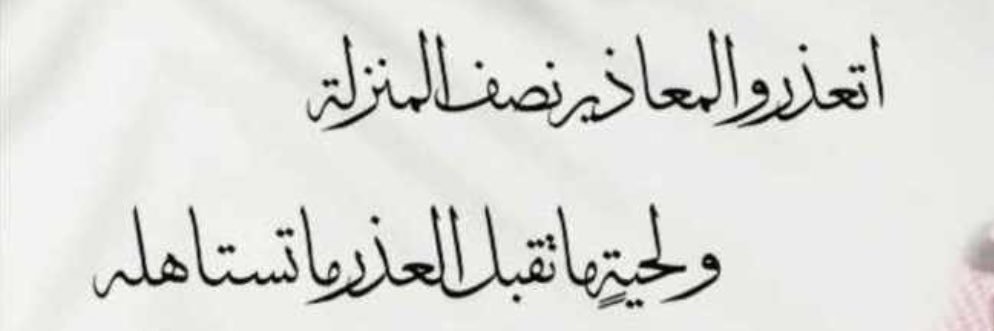 اتعذر والمعاذير نصف المنزلة
ولحيةٍ ماتقبل العذر ماتستاهله